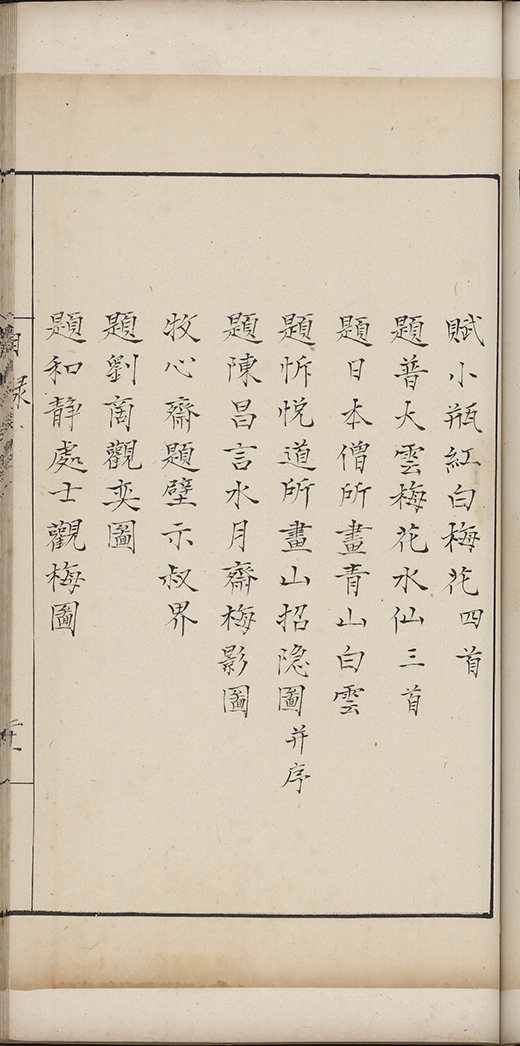 賦小瓶紅白梅花四首
題普大雲梅花水仙三首
題日本僧所畫青山白雲
題忻悅道所畫山招隐圖并序
題陳昌言水月齋梅影圖
牧心齋題壁示叔界
題劉商觀奕圖
題和静處士觀梅圖
目録